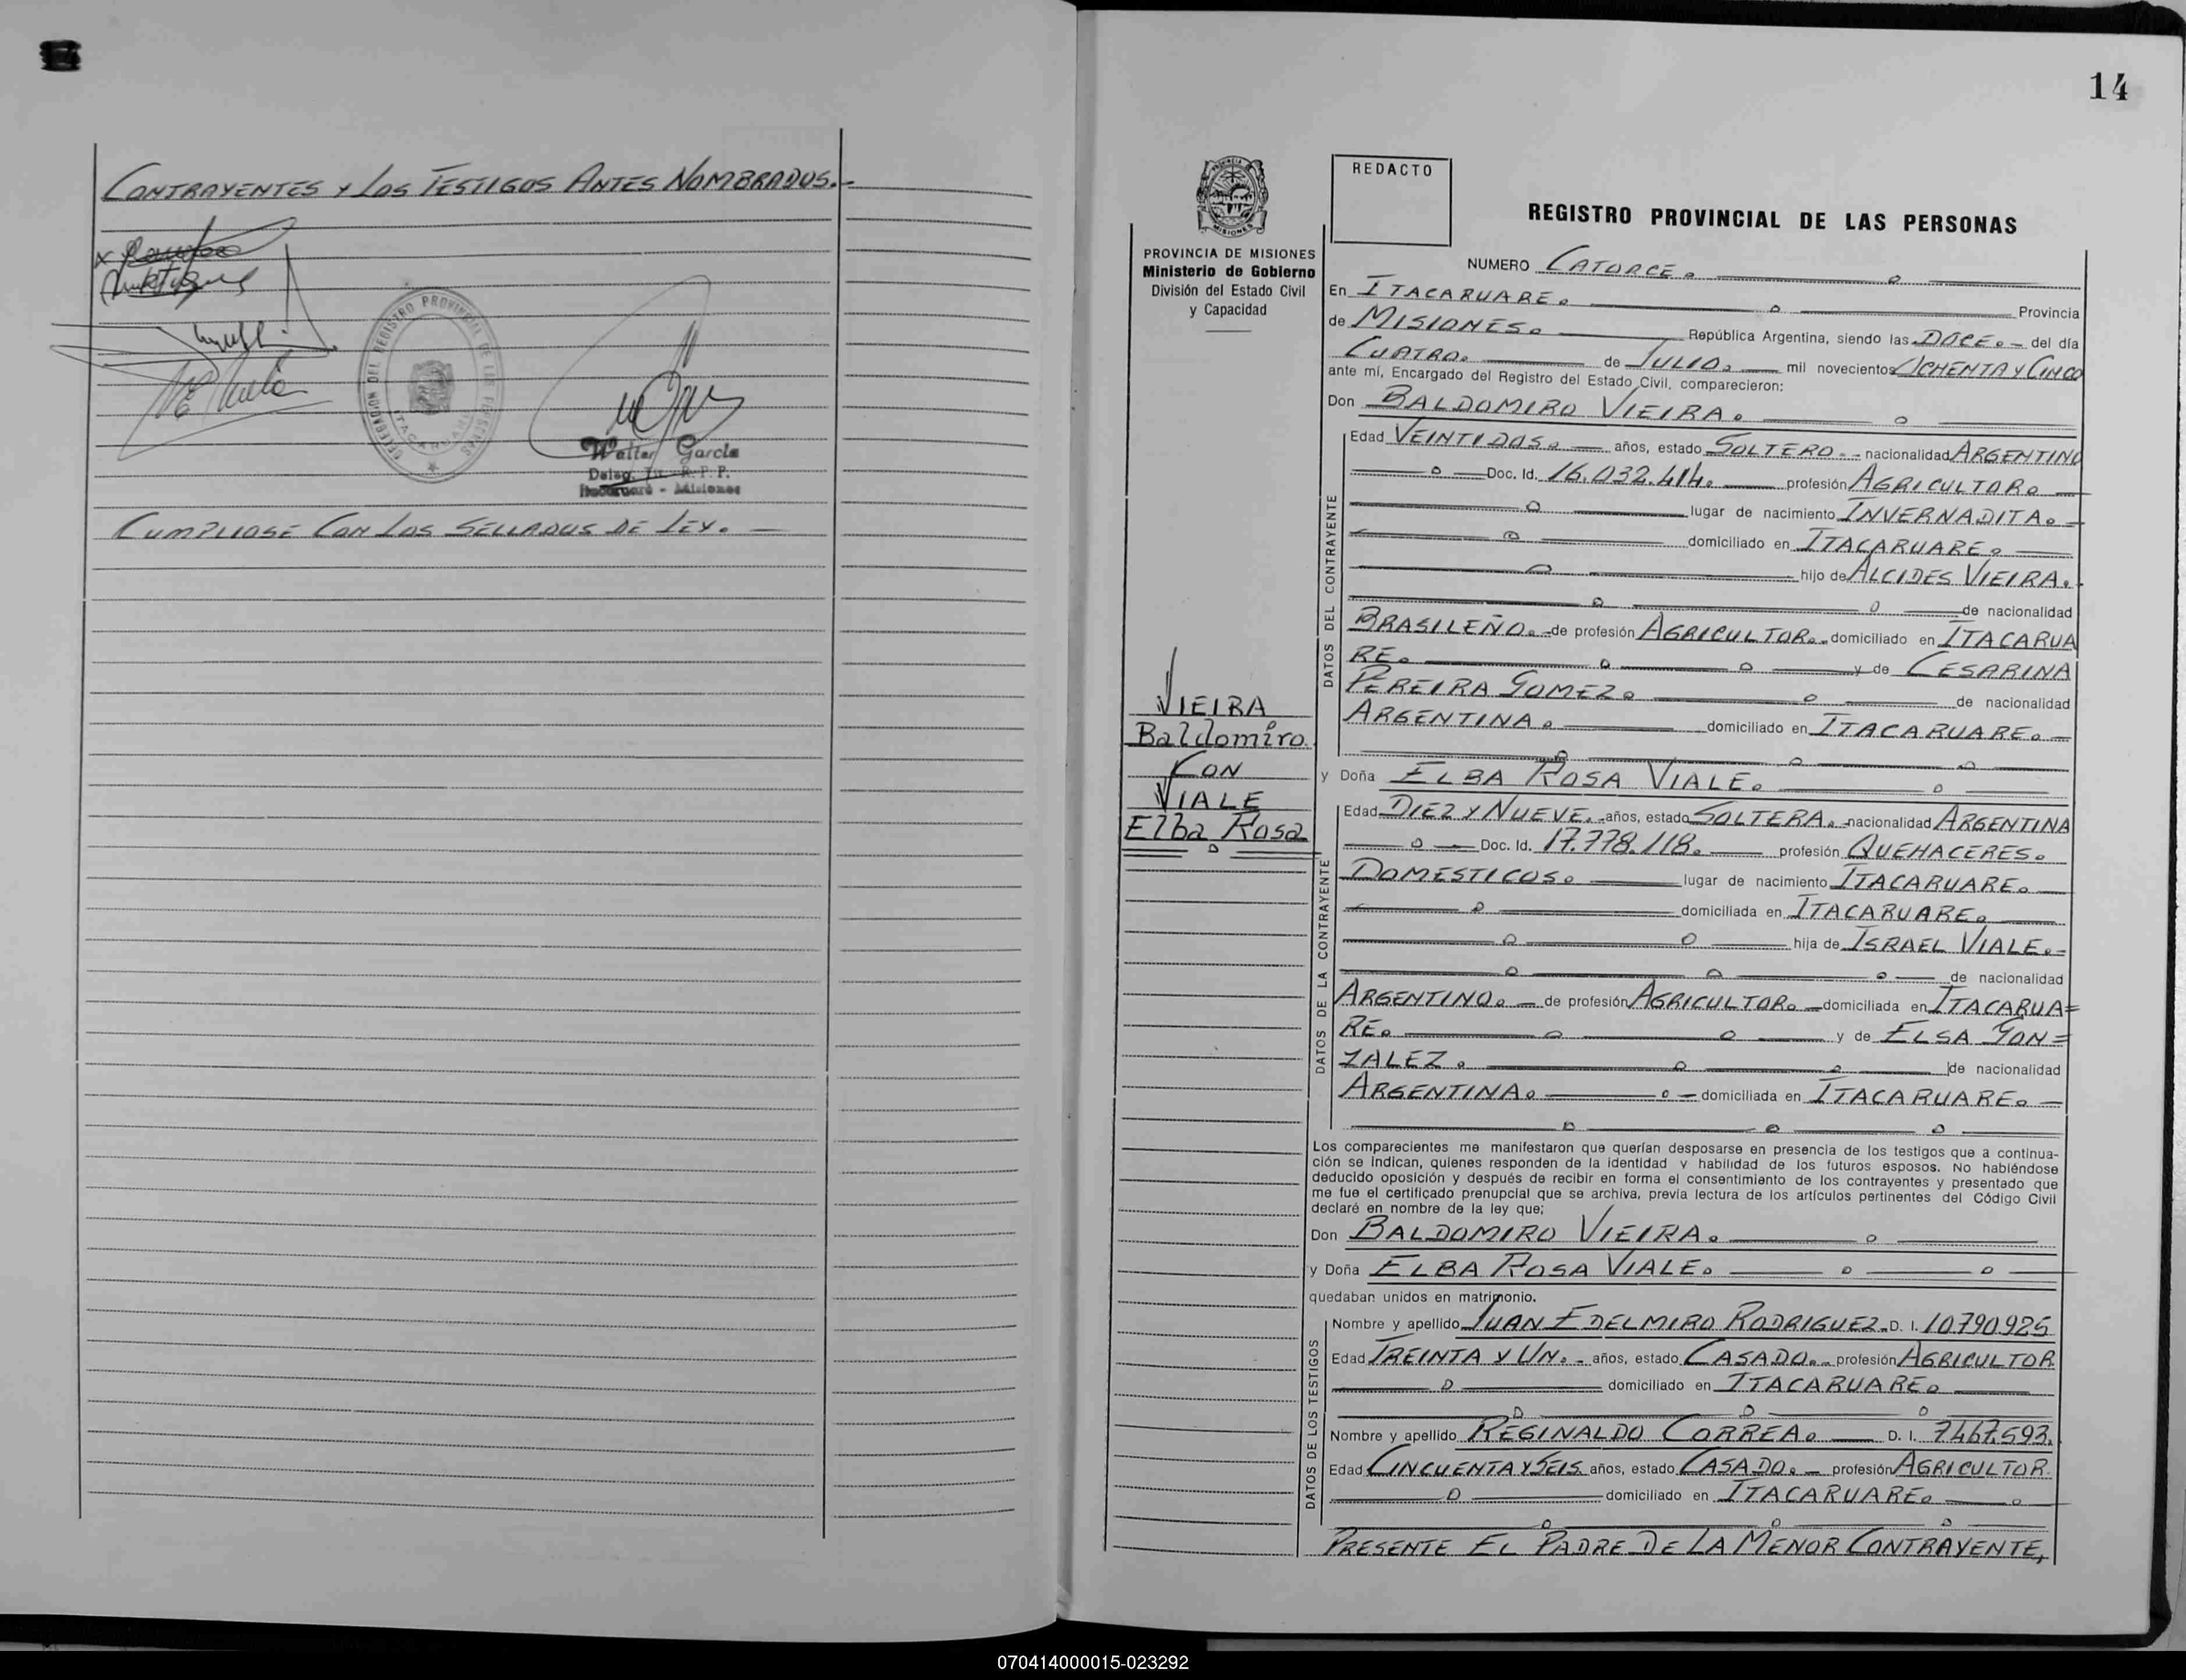 CONTRAYENTES Y LOS TESTIGOS ANTES NOMBRADOS.-
DELEGACION DEL REGISTRO PROVINCIAL DE LAS PERSONAS
ITACARUARE
Walter García
Deleg. Tit. R. P. P.
Itacaruaré - Misiones
CUMPLIOSE CON LOS SELLADOS DE LEY. —
14
PROVINCIA DE MISIONES
Ministerio de Gobierno
División del Estado Civil
y Capacidad
VIEIRA
Baldomiro
CON
VIALE
Elba Rosa
REDACTO
REGISTRO PROVINCIAL DE LAS PERSONAS
NUMERO CATORCE.
En ITACARUARE. Provincia
de MISIONES. República Argentina, siendo las DOCE. - del día
CUATRO. de JULIO. mil novecientos OCHENTA Y CINCO
ante mí, Encargado del Registro del Estado Civil, comparecieron:
Don BALDOMIRO VIEIRA.
DATOS DEL CONTRAYENTE
Edad VEINTIDOS. años, estado SOLTERO. - nacionalidad ARGENTINO
Doc. Id. 16.032.414. profesión AGRICULTOR.
lugar de nacimiento INVERNADITA.
domiciliado en ITACARUARE.
hijo de ALCIDES VIEIRA.
de nacionalidad
BRASILEÑO. - de profesión AGRICULTOR. - domiciliado en ITACARUA
RE. y de CESARINA
PEREIRA GOMEZ. de nacionalidad
ARGENTINA. domiciliado en ITACARUARE.
y Doña ELBA ROSA VIALE.
DATOS DE LA CONTRAYENTE
Edad DIEZ Y NUEVE. - años, estado SOLTERA. - nacionalidad ARGENTINA
Doc. Id. 17.778.118. profesión QUEHACERES.
DOMESTICOS. lugar de nacimiento ITACARUARE.
domiciliada en ITACARUARE.
hija de ISRAEL VIALE.
de nacionalidad
ARGENTINO. - de profesión AGRICULTOR. - domiciliada en ITACARUA=
RE. y de ELSA GON=
ZALEZ. de nacionalidad
ARGENTINA. domiciliada en ITACARUARE.
Los comparecientes me manifestaron que querían desposarse en presencia de los testigos que a continua-
ción se indican, quienes responden de la identidad y habilidad de los futuros esposos. No habiéndose
deducido oposición y después de recibir en forma el consentimiento de los contrayentes y presentado que
me fue el certificado prenupcial que se archiva, previa lectura de los artículos pertinentes del Código Civil
declaré en nombre de la ley que;
Don BALDOMIRO VIEIRA.
y Doña ELBA ROSA VIALE.
quedaban unidos en matrimonio.
DATOS DE LOS TESTIGOS
Nombre y apellido JUAN EDELMIRO RODRIGUEZ. D. I. 10790925
Edad TREINTA Y UN. - años, estado CASADO. - profesión AGRICULTOR.
domiciliado en ITACARUARE.
Nombre y apellido REGINALDO CORREA. D. I. 7467.593.
Edad CINCUENTA Y SEIS. años, estado CASADO. - profesión AGRICULTOR.
domiciliado en ITACARUARE.
PRESENTE EL PADRE DE LA MENOR CONTRAYENTE,
070414000015-023292